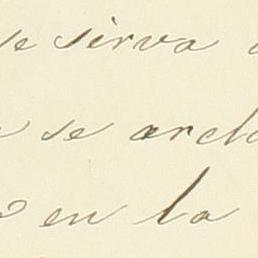 se sirva
se arch
en la